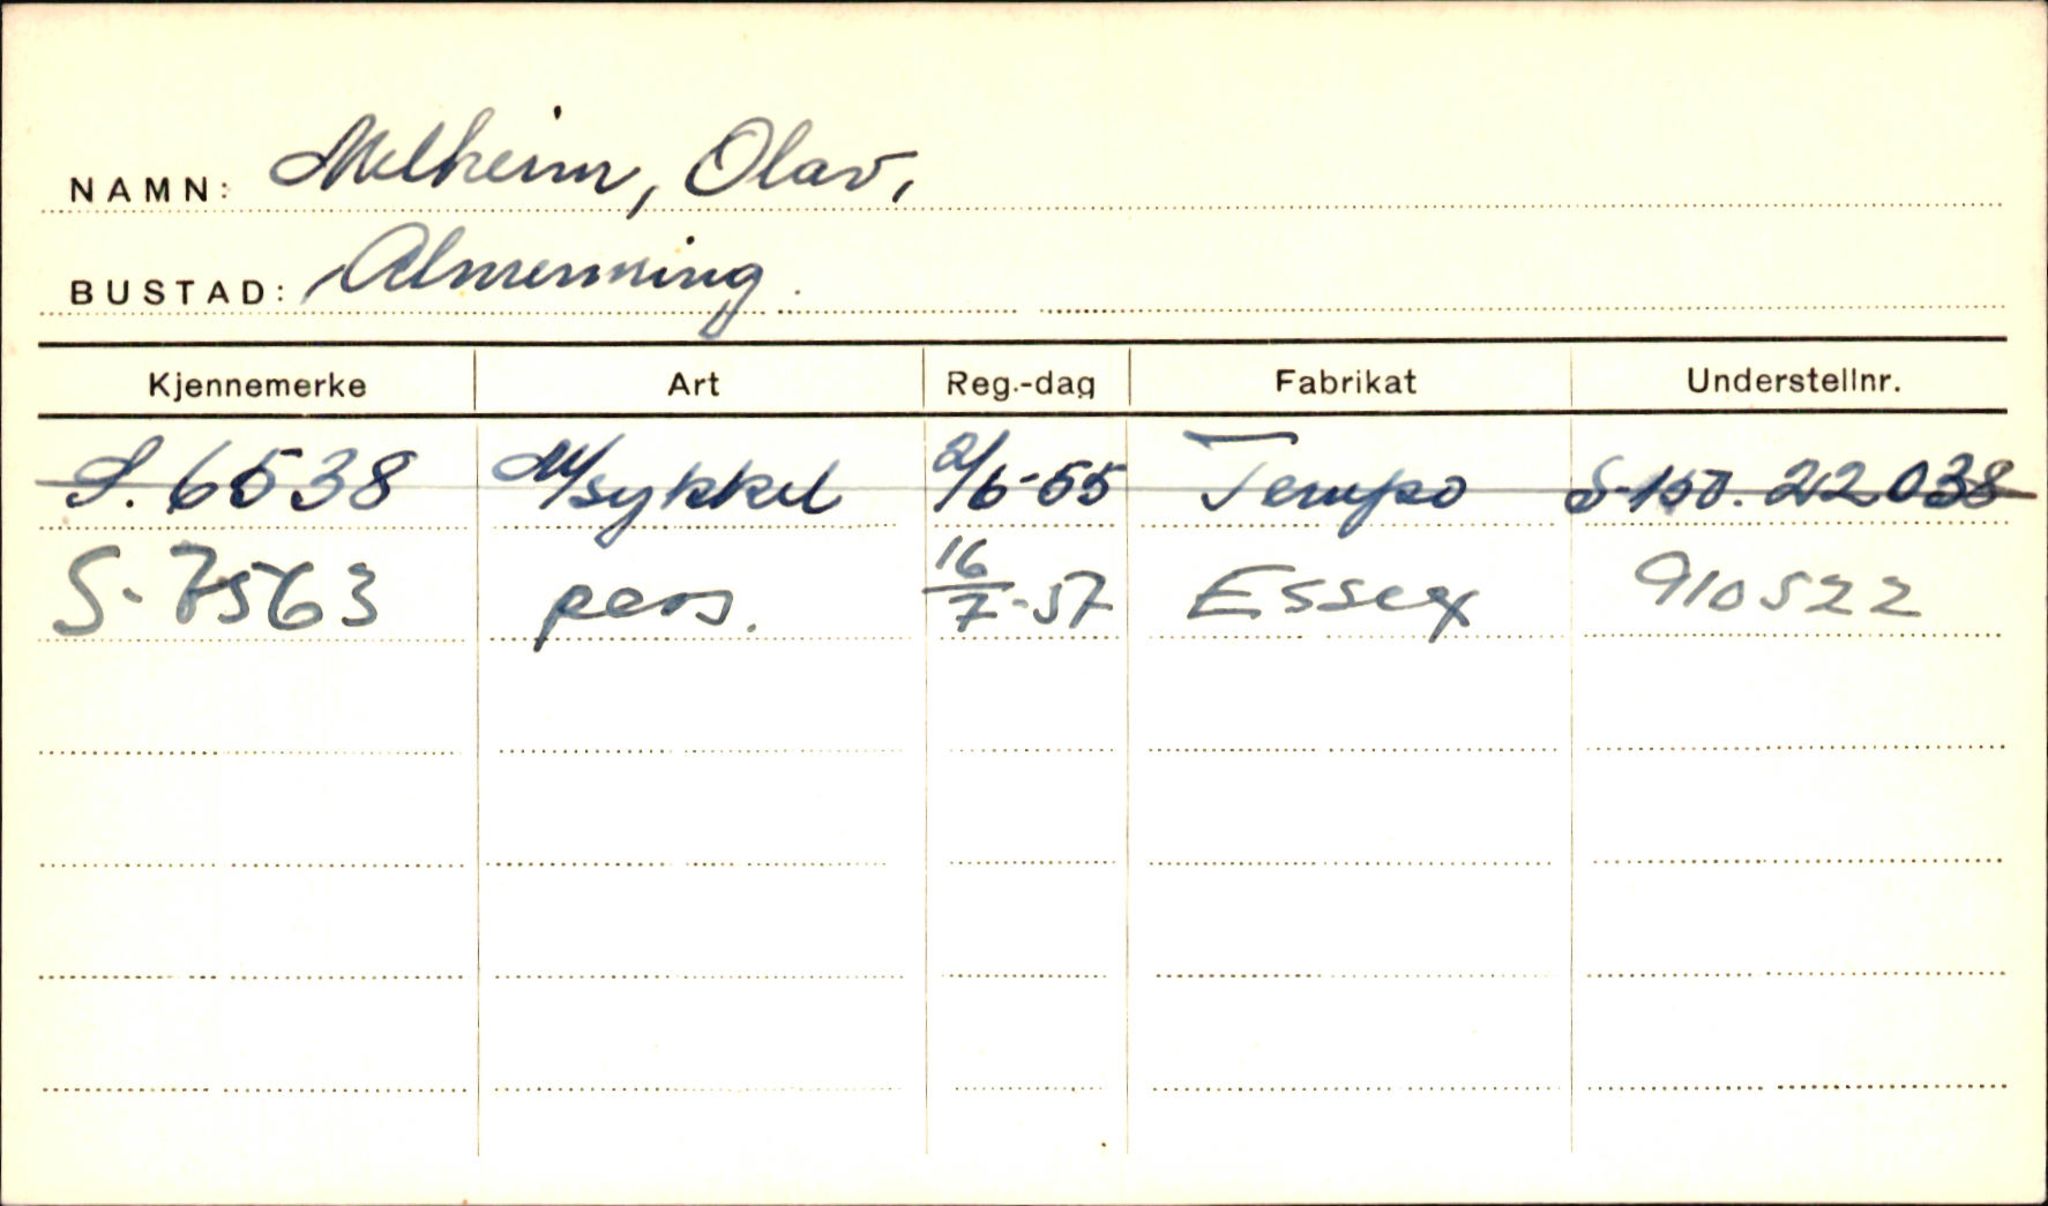 NAMN: Melheim, Olav,
BUSTAD: Almenning.
Kjennemerke Art Reg.-dag Fabrikat Understellnr.
S. 6538 M/sykkel 2/6-55 Tempo S-150. 22038
S-7563 pers. 16/7-57 Essex 910522